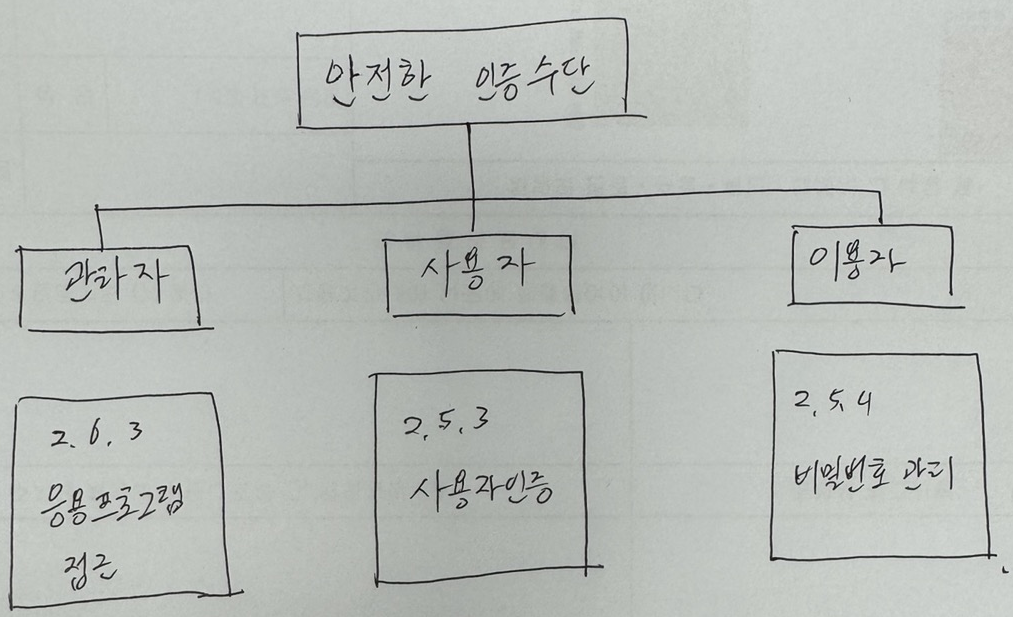 안전한 인증수단
관리자
사용자
이용자
2.6.3
응용프로그램
접근
2.5.3
사용자인증
2.5.4
비밀번호 관리